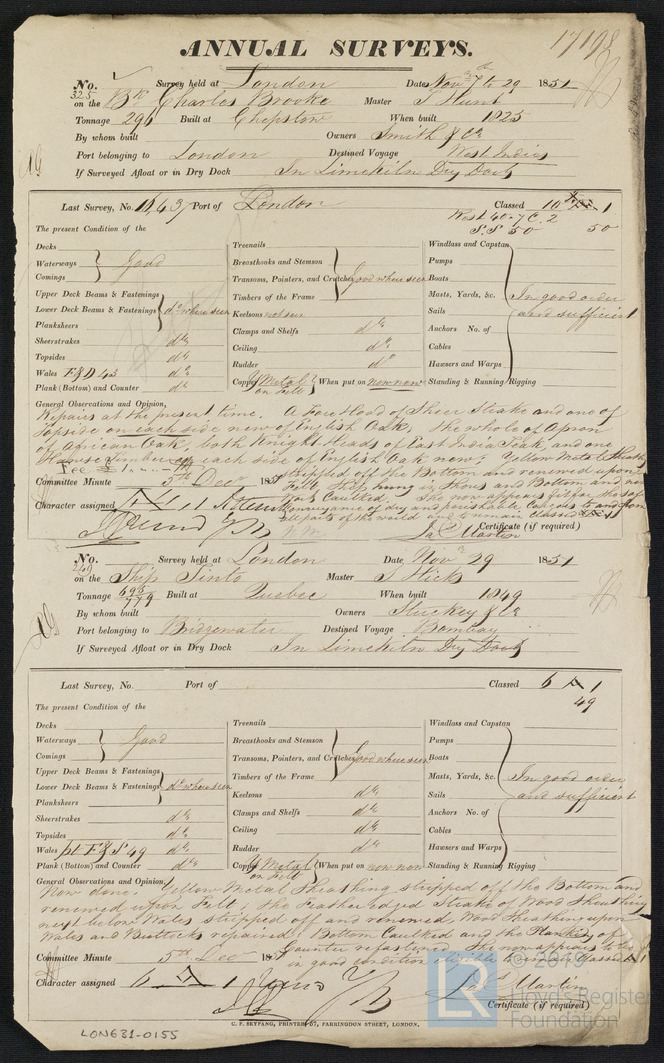 17198
ANNUAL SURVEYS.
No. 325 Survey held at London Date Nov 7 to 29 1851
on the Bk Charles Brooke Master J Hunt
Tonnage 296 Built at Chepstow When built 1825
By whom built Owners Smith & Co
Port belonging to London Destined Voyage West Indies
If Surveyed Afloat or in Dry Dock In Limekiln Dry Dock
Last Survey, No. Port of London Classed 10 1
Rest 40-7 C. 2
S.S 50 50
The present Condition of the
Decks
Waterways
Comings
Good
Upper Deck Beams & Fastenings
Lower Deck Beams & Fastenings
Planksheers
do where seen
Sheerstrakes do
Topsides do
Wales F&D 43 do
Plank (Bottom) and Counter do
Treenails
Breasthooks and Stemson
Transoms, Pointers, and Crutches
Timbers of the Frame
Good where seen
Keelsons not seen
Clamps and Shelfs do
Ceiling do
Rudder do
Copper Y Metal on Felt When put on now new
Windlass and Capstan
Pumps
Boats
Masts, Yards, &c.
Sails
Anchors No. of
Cables
Hawsers and Warps
Standing & Running Rigging
In good order
and sufficient
General Observations and Opinion,
Repairs at the present time. A Fore Hood of Sheer Strake and one of
Topside on each side new of English Oak, the whole of Apron
of African Oak, both Knight Heads of East India Teak, and one
Hawse Timber on each side of English Oak new. Yellow Metal Sheath
stripped off the Bottom and renewed upon
Felt. Ship hung in Shores and Bottom and
Caulked. She now appears fit for the safe
conveyance of dry and perishable Cargoes to and from
all parts of the world and to remain classed
Fee £1
Committee Minute 5th Decr 185
Character assigned
Jas Martin
Certificate (if required)
No. 249 Survey held at London Date Nov 29 1851
on the Ship Sinto Master J Hicks
Tonnage 695/779 Built at Quebec When built 1849
By whom built Owners Stuckey & Co
Port belonging to Bridgewater Destined Voyage Bombay
If Surveyed Afloat or in Dry Dock In Limekiln Dry Dock
Last Survey, No. Port of Classed 6 A 1
49
The present Condition of the
Decks
Waterways
Comings
Good
Upper Deck Beams & Fastenings
Lower Deck Beams & Fastenings
Planksheers
do where seen
Sheerstrakes do
Topsides do
Wales pt F&S 49 do
Plank (Bottom) and Counter do
Treenails
Breasthooks and Stemson
Transoms, Pointers, and Crutches
Timbers of the Frame
Good where seen
Keelsons do
Clamps and Shelfs do
Ceiling do
Rudder do
Copper Y Metal on Felt When put on now new
Windlass and Capstan
Pumps
Boats
Masts, Yards, &c.
Sails
Anchors No. of
Cables
Hawsers and Warps
Standing & Running Rigging
In good order
and sufficient
General Observations and Opinion,
Now done. Yellow Metal Sheathing stripped off the Bottom and
renewed upon Felt, the Featheredged Strake of Wood Sheathing
next below Wales stripped off and renewed, Wood Sheathing upon
Wales and Buttocks repaired. Bottom Caulked and the Planking of
Counter refastened. She now appears to be
in good condition eligible to remain Classed A 1
Committee Minute 5th Decr 185
Character assigned 6 A 1
Jas Martin
Certificate (if required)
C. F. SEYFANG, PRINTER, 57, FARRINGDON STREET, LONDON.
LON631-0155
LR © 2019
Lloyd's Register
Foundation